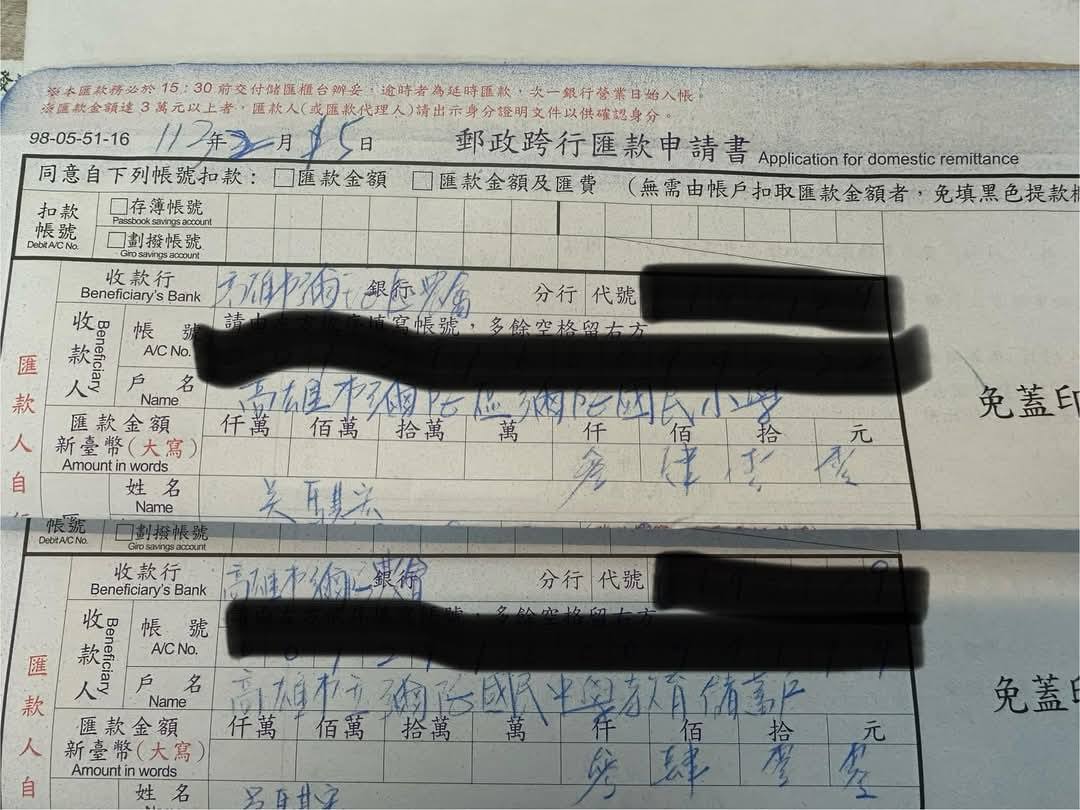 ※本匯款務必於15:30前交付儲匯櫃台辦妥,逾時者為延時匯款,次一銀行營業日始入帳。
※匯款金額達3萬元以上者,匯款人(或匯款代理人)請出示身分證明文件以供確認身分。
98-05-51-16 113年2月15日 郵政跨行匯款申請書 Application for domestic remittance
同意自下列帳號扣款: □匯款金額 □匯款金額及匯費 (無需由帳戶扣取匯款金額者,免填黑色提款
扣款帳號 Debit A/C No.
□存簿帳號 Passbook savings account
□劃撥帳號 Giro savings account
收款行 Beneficiary's Bank 高雄市彌 銀行 分行 代號
收款人 Beneficiary
帳號 A/C No. 多餘空格留右方
戶名 Name 高雄市彌陀區彌陀國民小學
匯款金額 新臺幣(大寫) Amount in words
仟萬 佰萬 拾萬 萬 仟 佰 拾 元
零
姓名 Name 吳
匯款人自
免蓋印
帳號 Debit A/C No. □劃撥帳號 Giro savings account
收款行 Beneficiary's Bank 高雄市彌 銀行 分行 代號
收款人 Beneficiary
帳號 A/C No. 多餘空格留右方
戶名 Name 高雄市立彌陀國民中學教育儲蓄戶
匯款金額 新臺幣(大寫) Amount in words
仟萬 佰萬 拾萬 萬 仟 佰 拾 元
參 肆 零 零
姓名 吳
匯款人自
免蓋印